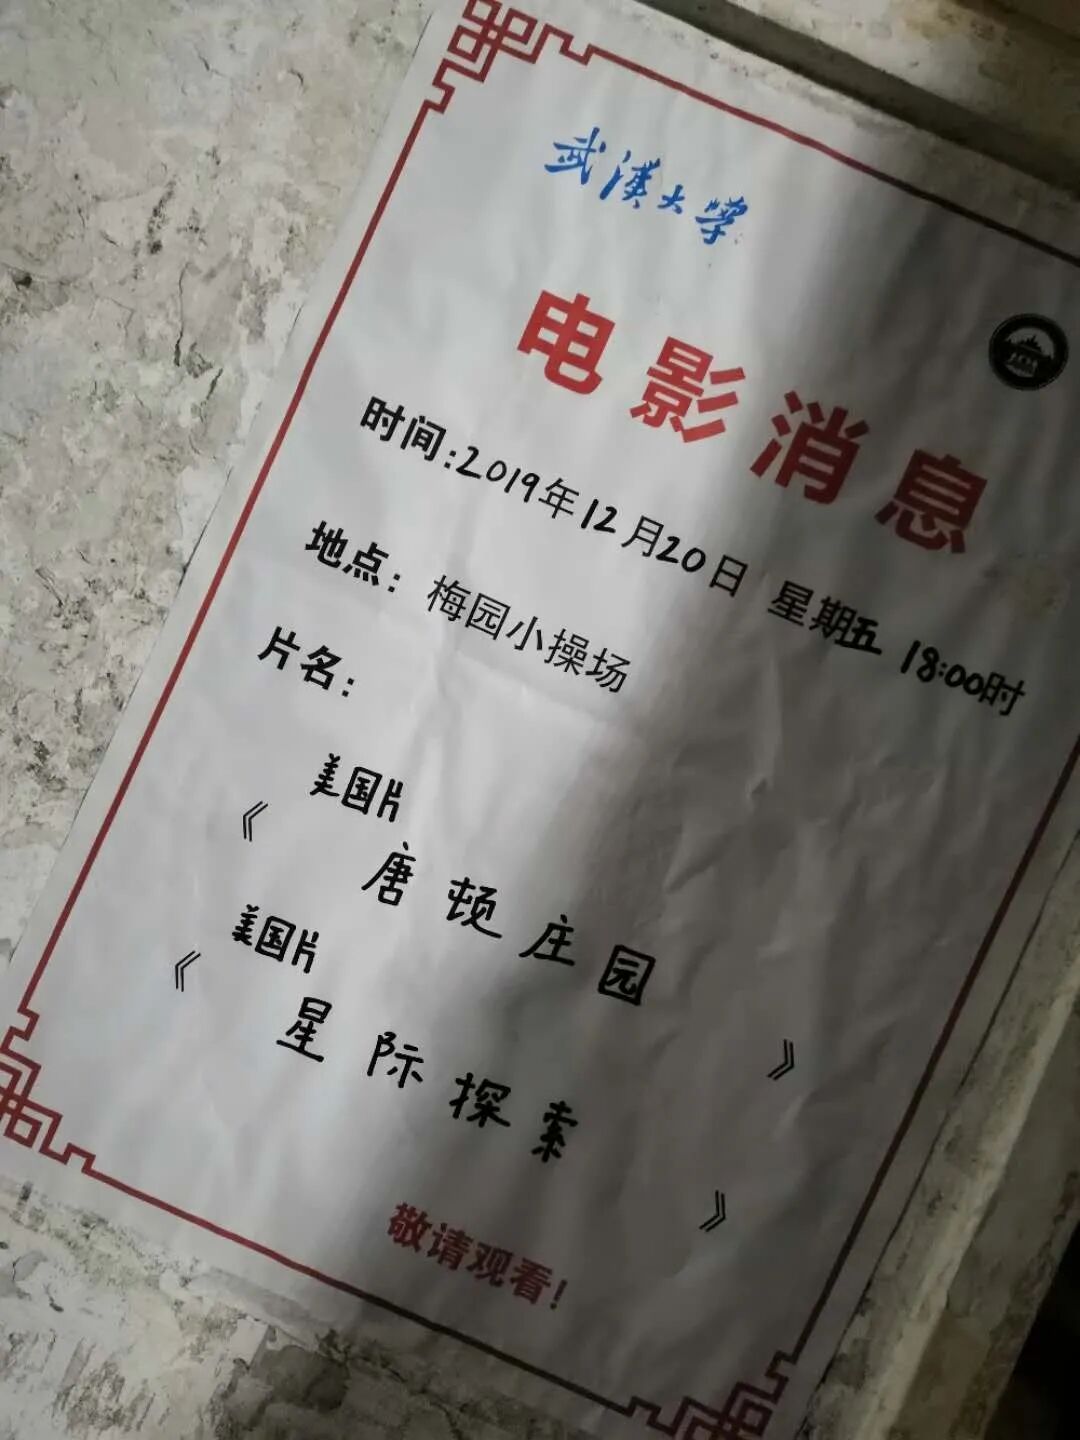 武汉大学
电影消息
时间:2019年12月20日 星期五 18:00时
地点：梅园小操场
片名：
美国片
《唐顿庄园》
美国片
《星际探索》
敬请观看！